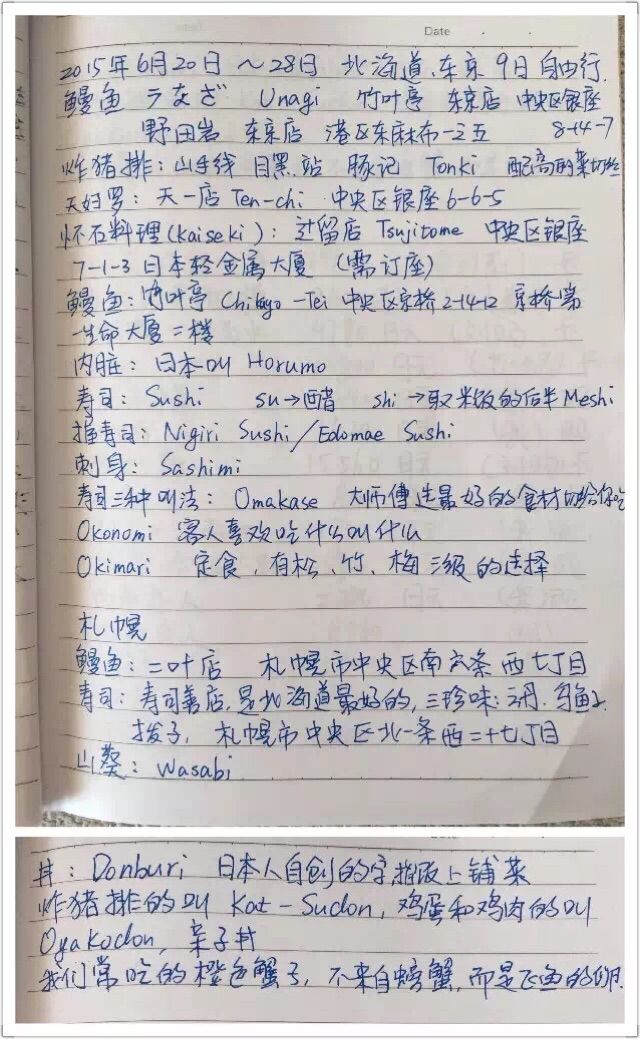 Date
2015年6月20日～28日 北海道、东京 9日自由行.
鳗鱼 うなぎ Unagi 竹叶亭 东京店 中央区银座
野田岩 东京店 港区东麻布一之五 8-14-7
炸猪排：山手线 目黑站 豚记 Tonki 配高丽菜切丝
天妇罗：天一店 Ten-chi 中央区银座6-6-5
怀石料理(Kaiseki)：辻留店 Tsujitome 中央区银座
7-1-3 日本轻金属大厦 (需订座)
鳗鱼：竹叶亭 Chikuyo-Tei 中央区京桥2-14-12 京桥第
一生命大厦二楼
内脏：日本叫 Horumo
寿司：Sushi su→醋 shi→取米饭的后半Meshi
握寿司：Nigiri Sushi/Edomae Sushi
刺身：Sashimi
寿司三种叫法：Omakase 大师傅选最好的食材切给你吃
Okonomi 客人喜欢吃什么叫什么
Okimari 定食、有松、竹、梅三级的选择
札幌
鳗鱼：二叶店 札幌市中央区南六条西七丁目
寿司：寿司善店,是北海道最好的,三珍味：云丹、乌鱼子、
拨子, 札幌市中央区北一条西二十七丁目
山葵：Wasabi
丼：Donburi 日本人自创的字,指饭上铺菜
炸猪排的叫 Kat-Sudon, 鸡蛋和鸡肉的叫
Oyakodon, 亲子丼
我们常吃的橙色蟹子, 不来自螃蟹,而是飞鱼的卵.